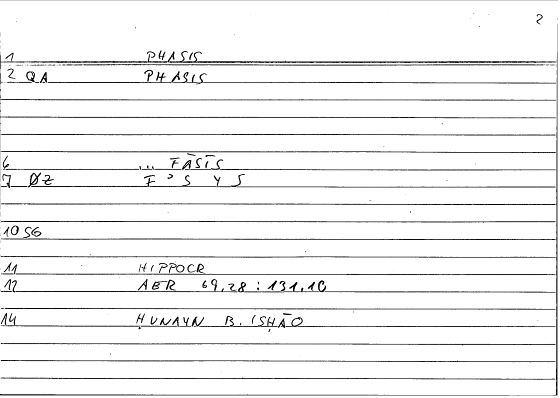 2
1 PHASIS
2 QA PHASIS
6 ... FĀSĪS
7 ØZ F ᵓ S Y S
10 SG
11 HIPPOCR
12 AER 69,28 : 131,10
14 ḤUNAYN B. ISḤĀQ